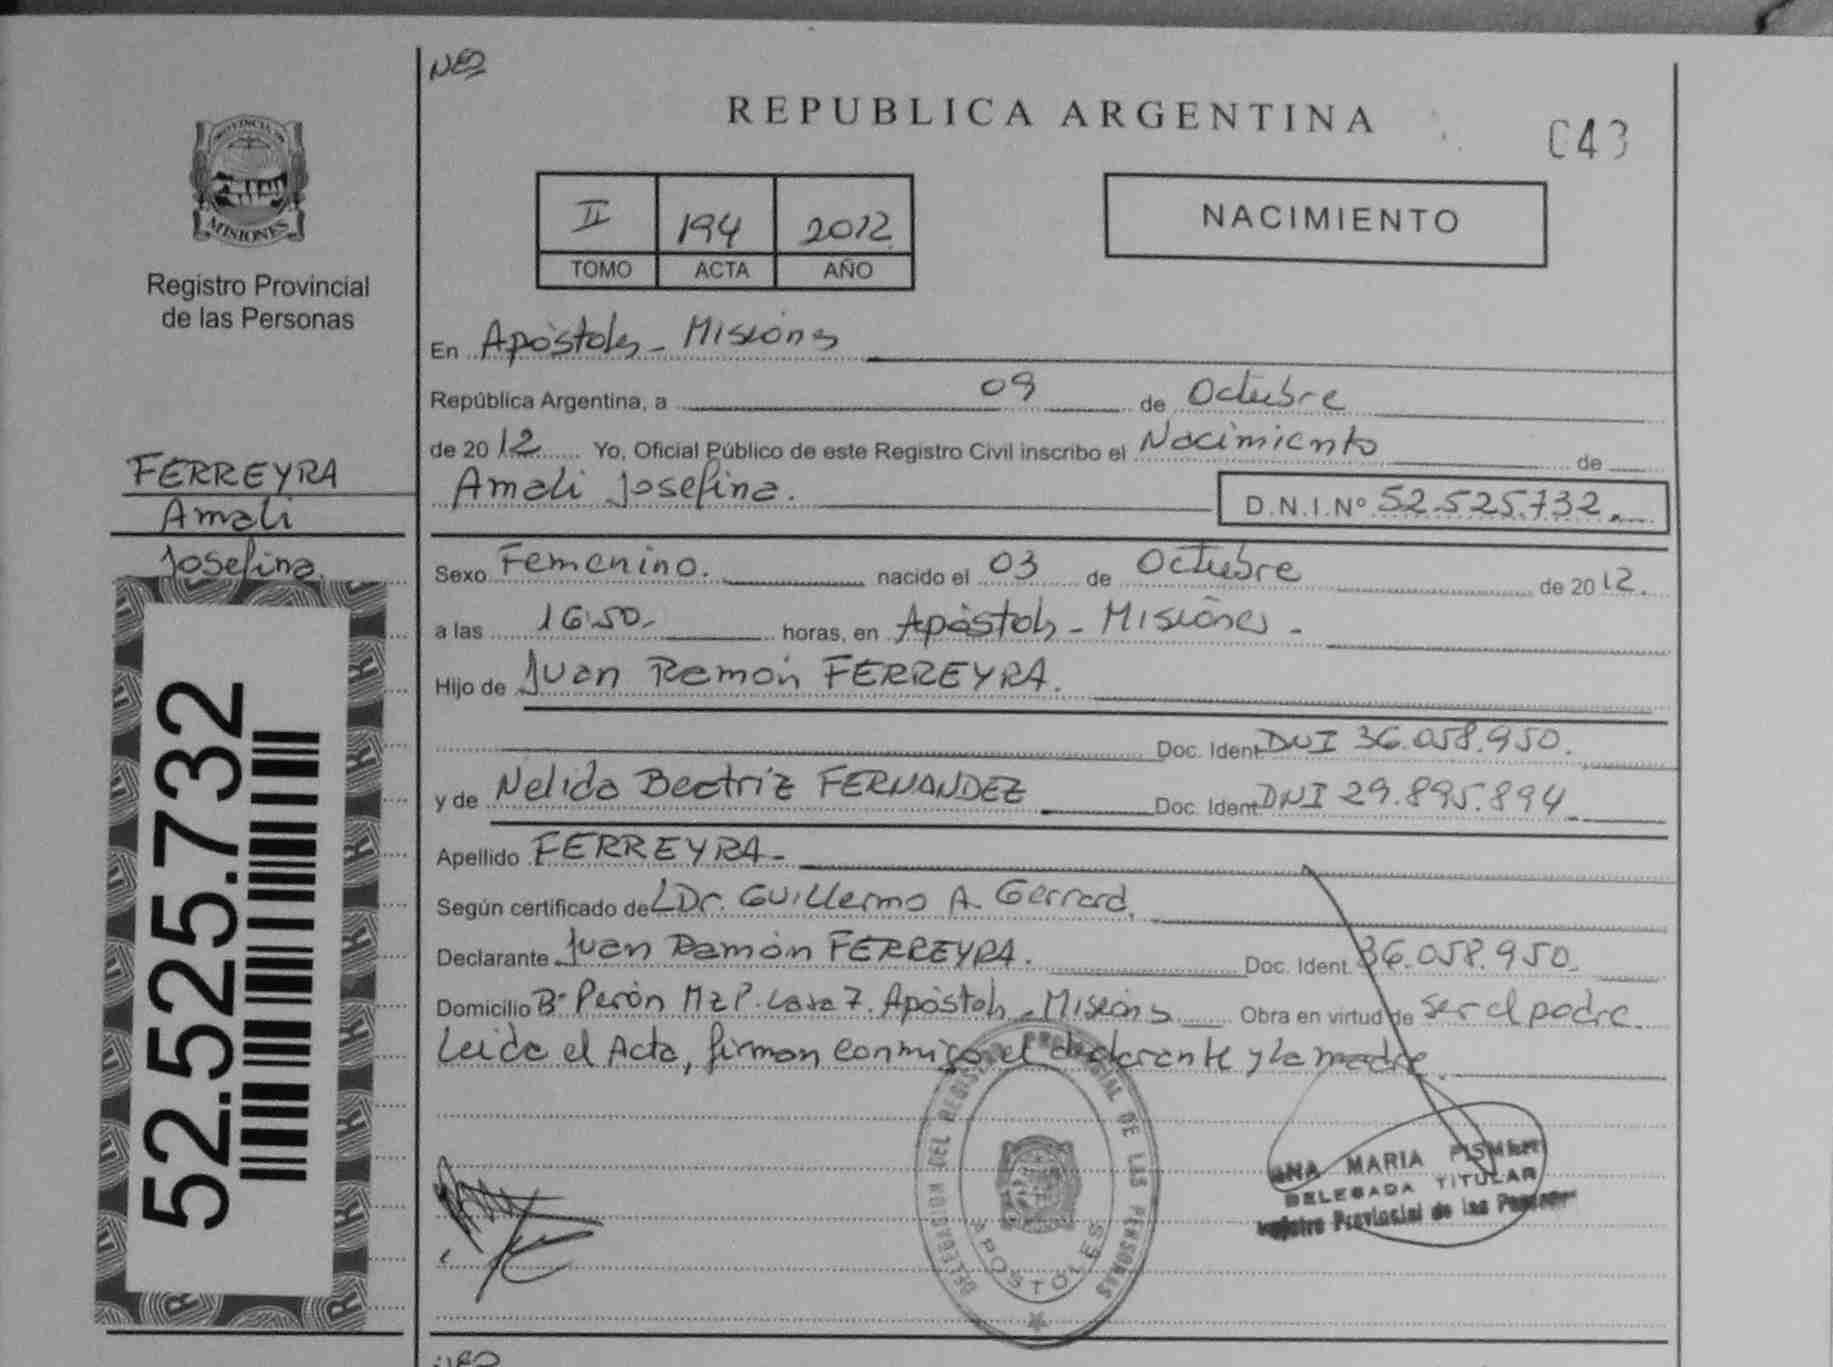 NEO
REPUBLICA ARGENTINA
C43
PROVINCIA DE
MISIONES
Registro Provincial
de las Personas
II 194 2012
TOMO ACTA AÑO
NACIMIENTO
En Apóstoles - Misiones
República Argentina, a 09 de Octubre
de 2012 Yo, Oficial Público de este Registro Civil inscribo el Nacimiento de
Amali Josefina.
D.N.I.Nº 52.525.732.
FERREYRA
Amali
Josefina.
Sexo Femenino. nacido el 03 de Octubre de 2012.
a las 16:50.- horas, en Apóstoles - Misiones -
Hijo de Juan Ramón FERREYRA.
Doc. Ident. DNI 36.058.950.
y de Nelida Beatriz FERNANDEZ Doc. Ident. DNI 29.895.894
Apellido FERREYRA-
Según certificado de LDr. Guillermo A. Gerrard.
Declarante Juan Ramón FERREYRA. Doc. Ident. 36.058.950.
Domicilio Bº Perón Mz P. Casa 7. Apóstoles - Misiones Obra en virtud de ser el padre.
Leida el Acta, firman conmigo el declarante y la madre.
52.525.732
DELEGACION DEL REGISTRO PROVINCIAL DE LAS PERSONAS
APOSTOLES
ANA MARIA
DELEGADA TITULAR
Registro Provincial de las Personas